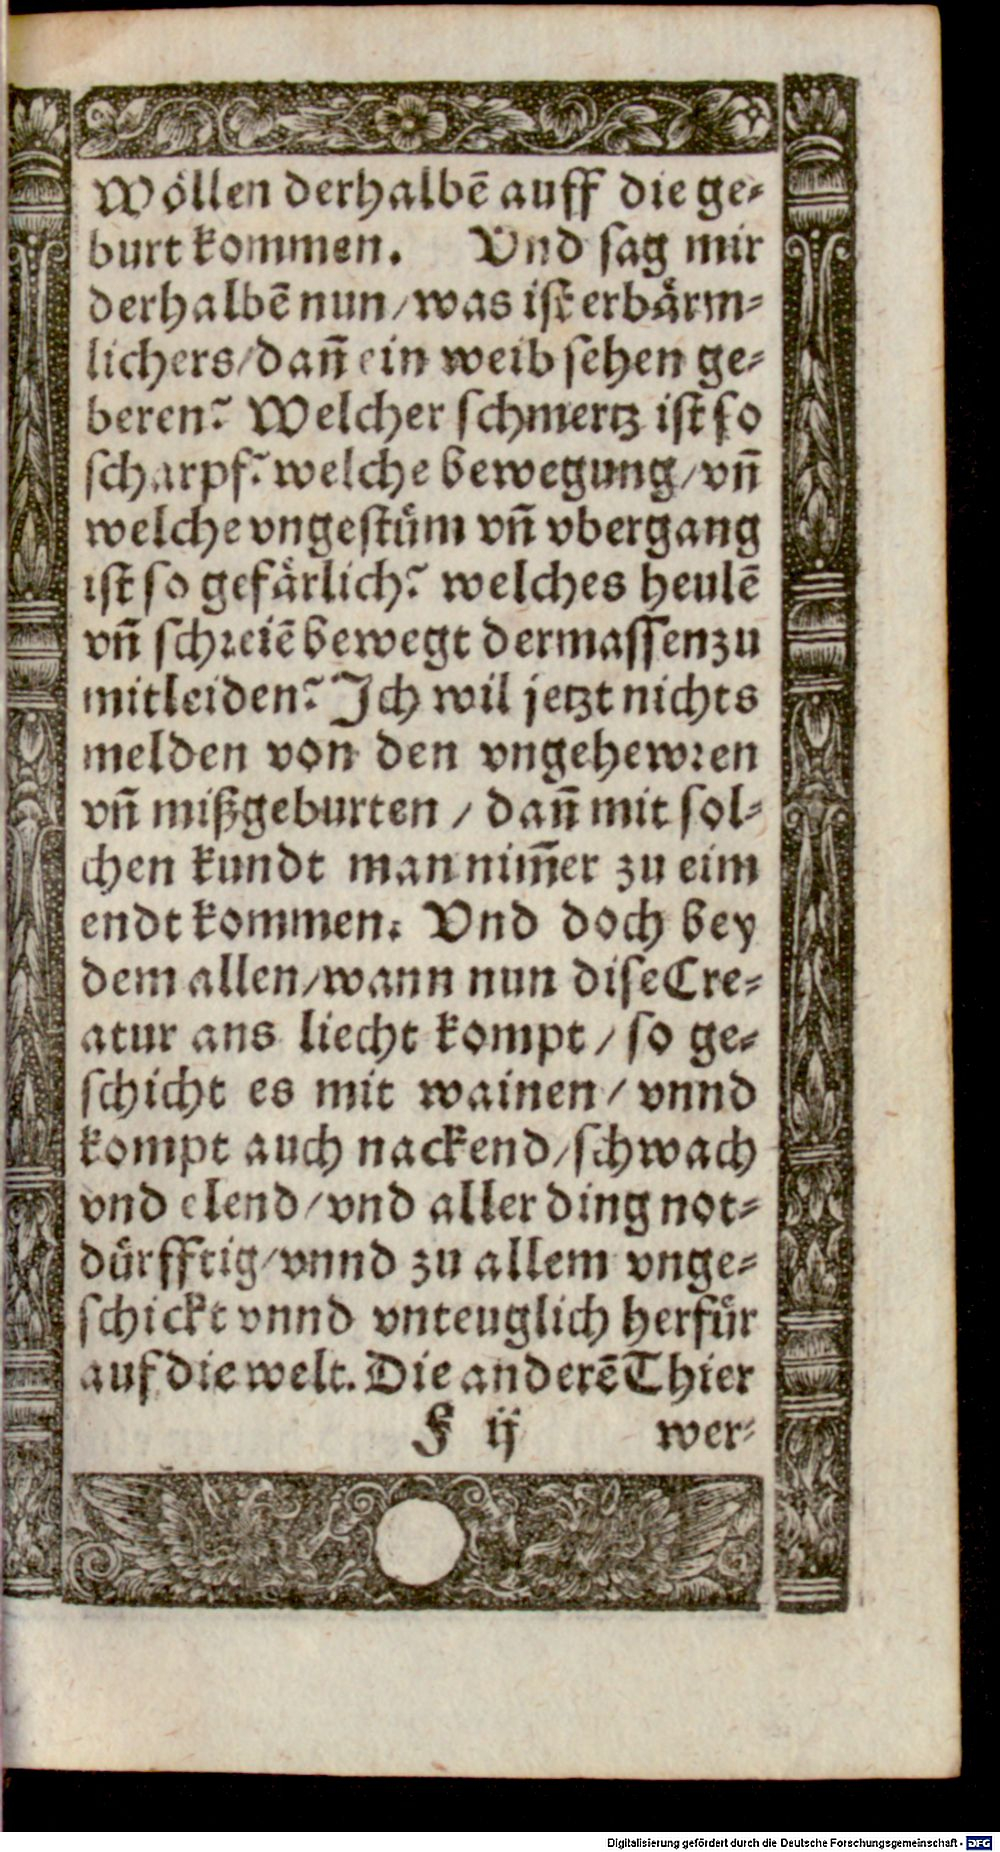 Wöllen derhalbē auff die ge-
burt kommen. Vnd sag mir
derhalbē nun/was ist erbärm-
lichers/dañ ein weib sehen ge-
beren? Welcher schmertz ist so
scharpf? welche bewegung/vñ
welche vngestüm vñ vbergang
ist so gefärlich? welches heulē
vñ schreiē bewegt dermassen zu
mitleiden? Ich wil jetzt nichts
melden von den vngehewren
vñ mißgeburten / dañ mit sol-
chen kundt man nim̃er zu eim
endt kommen. Vnd doch bey
dem allen/wann nun dise Cre-
atur ans liecht kompt / so ge-
schicht es mit wainen / vnnd
kompt auch nackend/schwach
vnd elend/vnd aller ding not-
dürfftig/vnnd zu allem vnge-
schickt vnnd vnteuglich herfür
auf die welt. Die anderē Thier
F ij wer-
Digitalisierung gefördert durch die Deutsche Forschungsgemeinschaft - DFG